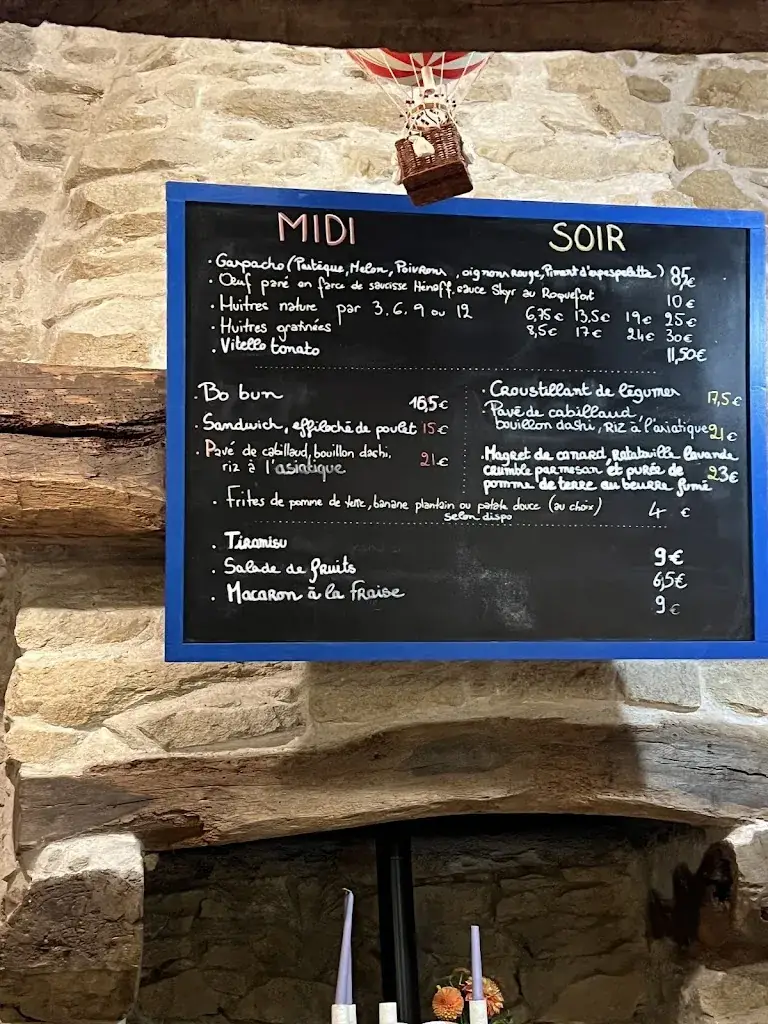 MIDI SOIR
. Gaspacho (Pastèque, Melon, Poivrons, oignons rouge, Piment d'espespelette) 8,5€
. Œuf pané en farce de saucisse Hénaff, sauce Skyr au Roquefort 10 €
. Huitres nature par 3. 6. 9 ou 12 6,75€ 13,5€ 19€ 25€
. Huitres gratinées 8,5€ 17€ 24€ 30€
. Vitello tonato 11,50€
. Bo bun 16,5€
. Sandwich, effiloché de poulet 15€
. Pavé de cabillaud, bouillon dashi,
riz à l'asiatique 21€
. Croustillant de légumes 17,5€
. Pavé de cabillaud,
bouillon dashi, Riz à l'asiatique 21€
. Magret de canard, Ratatouille lavande
crumble parmesan et purée de 23€
pomme de terre au beurre fumé
. Frites de pomme de terre, banane plantain ou patate douce (au choix) 4 €
selon dispo
. Tiramisu 9€
. Salade de fruits 6,5€
. Macaron à la fraise 9€